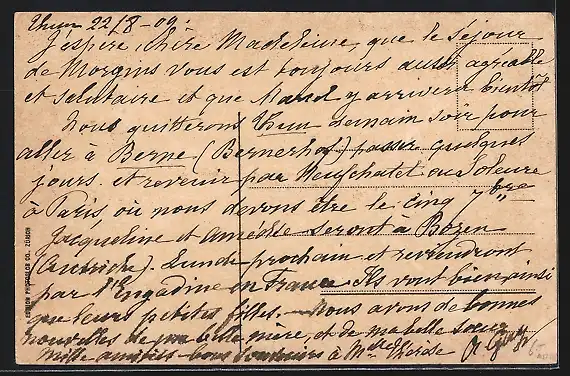 Thun 22/8-09.
J'espère, chère Madeleine, que le séjour
de Morgins vous est toujours aussi agréable
et salutaire et que Maud y arrivera bientôt
Nous quitterons Thun demain soir pour
aller à Berne (Bernerhof) passer quelques
jours et revenir par Neufchatel ou Soleure
à Paris, où nous devons être le cinq 7bre
Jacqueline et Amédée seront à Bozen
(Autriche). Lundi prochain et reviendront
par l'Engadine en France. Ils vont bien ainsi
que leurs petites filles. Nous avons de bonnes
nouvelles de ma belle mère, et de ma belle sœur
Mille amitiés - bons souvenirs à Mlle Thérèse
ZÜRICH